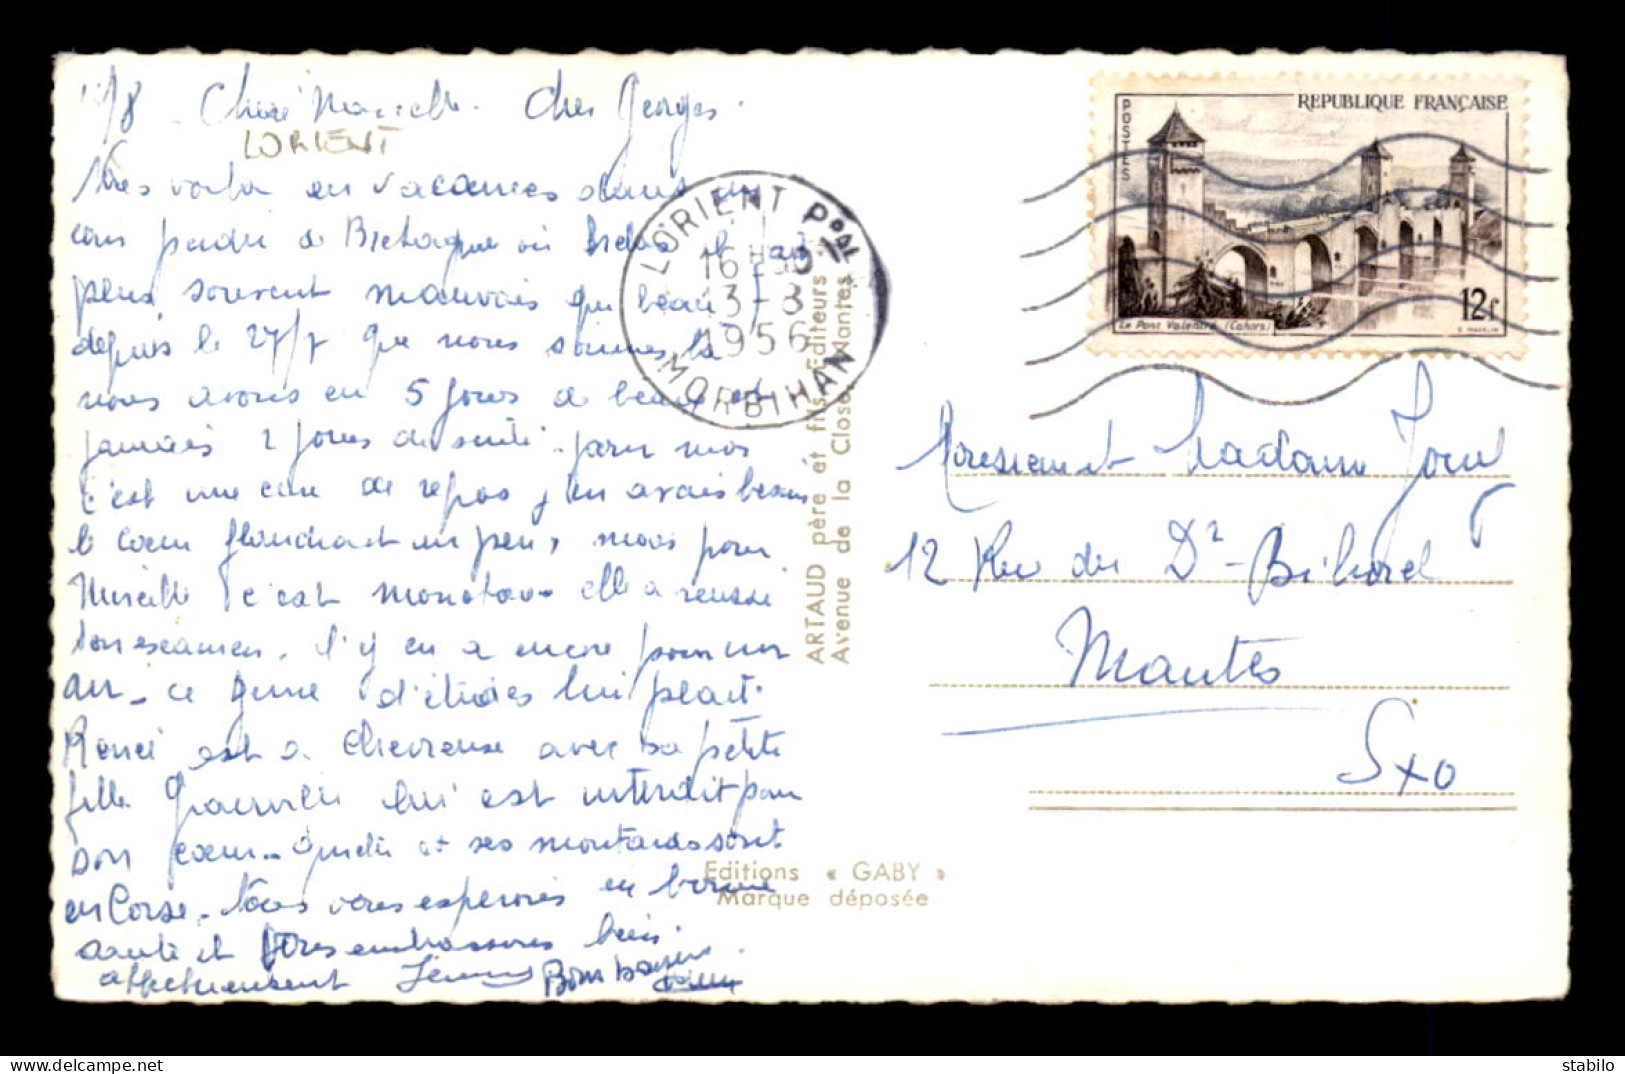 Chère Marcelle. Cher Georges.
LORIENT
Nous voilà en vacances dans un
coin perdu de Bretagne où hélas il fait
plus souvent mauvais que beau
depuis le 27/7 que nous sommes là
nous avons eu 5 jours de beau et
jamais 2 jours de suite. pour moi
c'est une cure de repos j'en avais besoin
le coeur flanchait un peu, mais pour
Mireille c'est monotone elle a réussi
son examen. il y en a encore pour un
an - ce genre d'études lui plait.
Renée est à Chevreuse avec sa petite
fille Granville lui est interdit pour
son coeur - et ses moutards sont
en Corse. Nous vous espérons en bonne
santé et vous embrassons bien
affectueusement
REPUBLIQUE FRANÇAISE
POSTES
12F
Le Pont Valentré (Cahors)
LORIENT Pal
16H
13-8
1956
MORBIHAN
Monsieur et Madame
12 Rue du Dr Bihorel
Mantes
SxO
ARTAUD père et fils, Editeurs
Avenue de la Close Nantes
Editions « GABY »
Marque déposée
stabilo www.delcampe.net